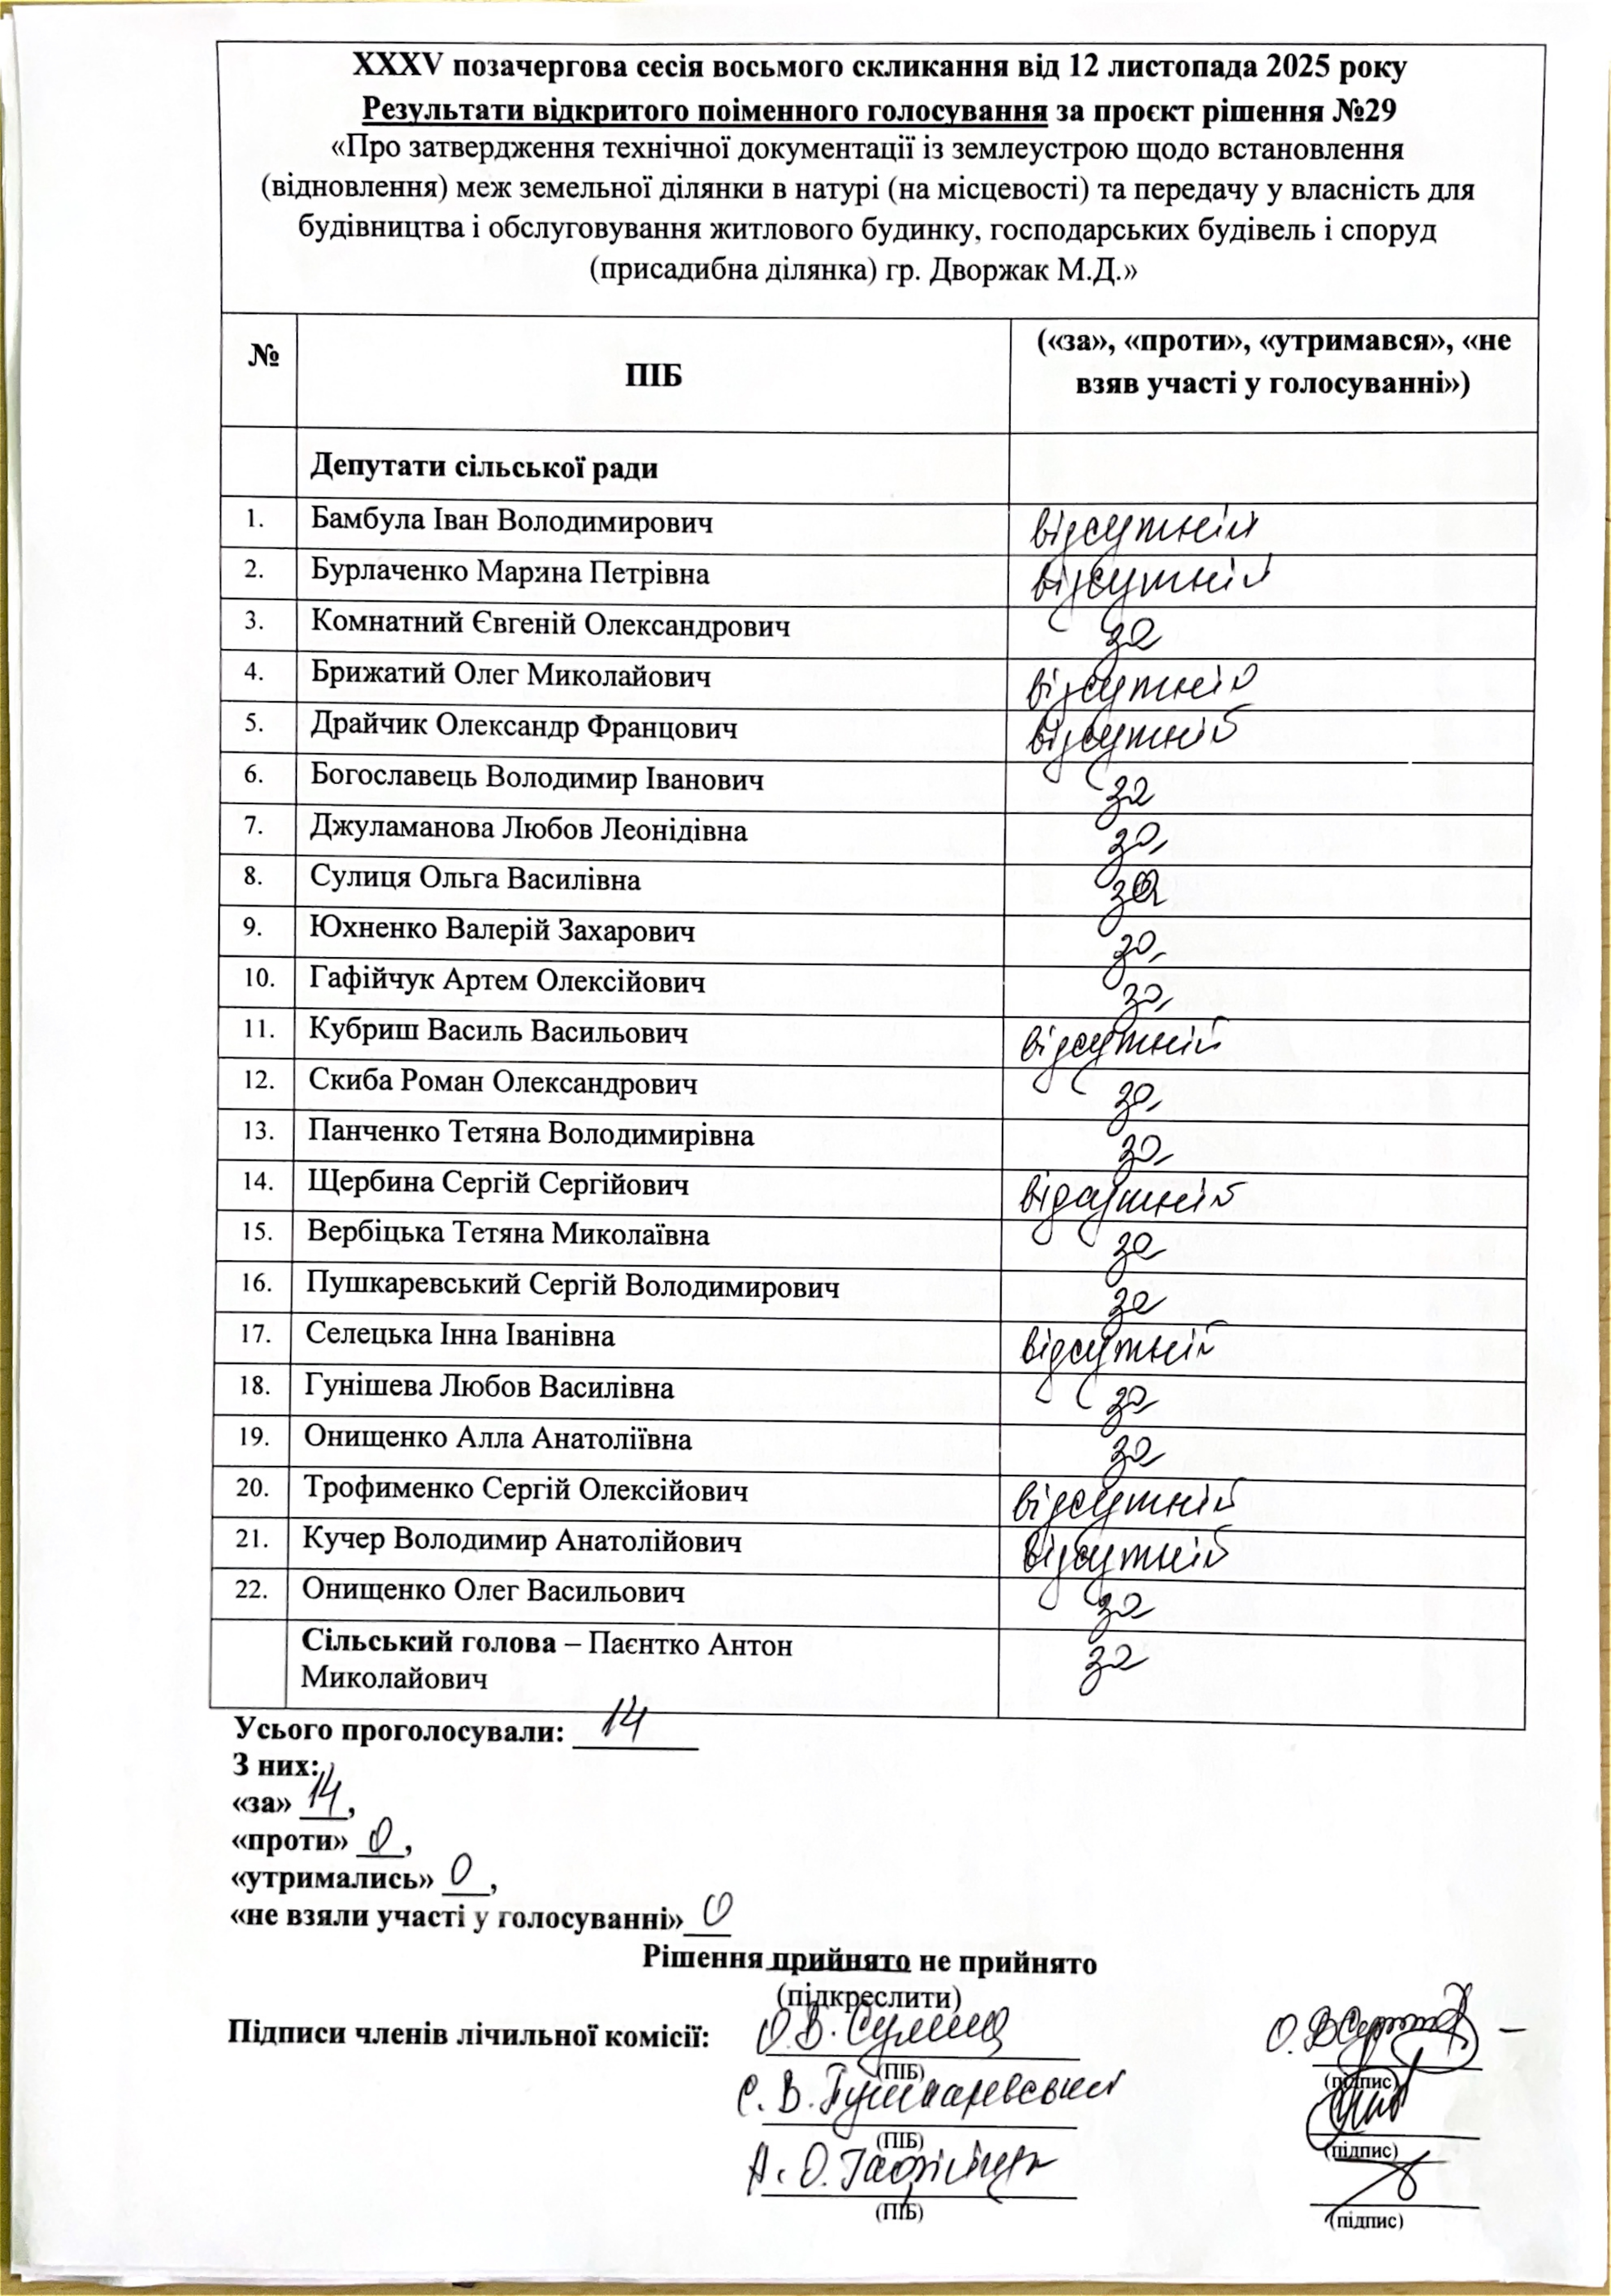 XXXV позачергова сесія восьмого скликання від 12 листопада 2025 року
Результати відкритого поіменного голосування за проєкт рішення №29
«Про затвердження технічної документації із землеустрою щодо встановлення
(відновлення) меж земельної ділянки в натурі (на місцевості) та передачу у власність для
будівництва і обслуговування житлового будинку, господарських будівель і споруд
(присадибна ділянка) гр. Дворжак М.Д.»
№ ПІБ («за», «проти», «утримався», «не
взяв участі у голосуванні»)
Депутати сільської ради
1. Бамбула Іван Володимирович відсутній
2. Бурлаченко Марина Петрівна відсутній
3. Комнатний Євгеній Олександрович за
4. Брижатий Олег Миколайович відсутній
5. Драйчик Олександр Францович відсутній
6. Богославець Володимир Іванович за
7. Джуламанова Любов Леонідівна за
8. Сулиця Ольга Василівна за
9. Юхненко Валерій Захарович за
10. Гафійчук Артем Олексійович за
11. Кубриш Василь Васильович відсутній
12. Скиба Роман Олександрович за
13. Панченко Тетяна Володимирівна за
14. Щербина Сергій Сергійович відсутній
15. Вербіцька Тетяна Миколаївна за
16. Пушкаревський Сергій Володимирович за
17. Селецька Інна Іванівна відсутній
18. Гунішева Любов Василівна за
19. Онищенко Алла Анатоліївна за
20. Трофименко Сергій Олексійович відсутній
21. Кучер Володимир Анатолійович відсутній
22. Онищенко Олег Васильович за
Сільський голова – Паєнтко Антон
Миколайович за
Усього проголосували: 14
З них:
«за» 14,
«проти» 0,
«утримались» 0,
«не взяли участі у голосуванні» 0
Рішення прийнято не прийнято
(підкреслити)
Підписи членів лічильної комісії: О.В. Сулиця
(ПІБ) (підпис)
С.В. Пушкаревський
(ПІБ) (підпис)
А.О. Гафійчук
(ПІБ) (підпис)